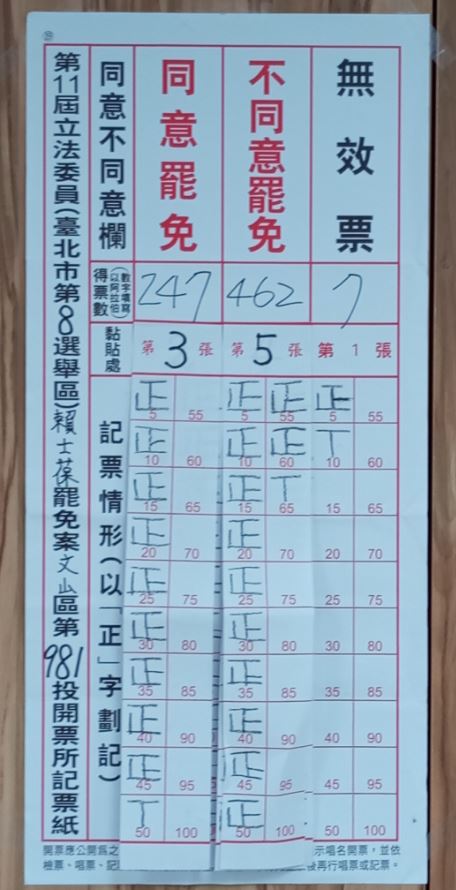 第11屆立法委員(臺北市第8選舉區)賴士葆罷免案文山區第981投開票所記票紙
同意不同意欄
同意罷免
不同意罷免
無效票
得票數(以阿拉伯數字填寫)
247
462
7
黏貼處
第3張
第5張
第1張
記票情形(以「正」字劃記)
正 5 55
正 10 60
正 15 65
正 20 70
正 25 75
正 30 80
正 35 85
正 40 90
正 45 95
丅 50 100
正 5 正 55
正 10 正 60
正 15 丅 65
正 20 70
正 25 75
正 30 80
正 35 85
正 40 90
正 45 95
正 50 100
正 5 55
丅 10 60
15 65
20 70
25 75
30 80
35 85
40 90
45 95
50 100
開票應公開為之
示唱名開票,並依
檢票、唱票、記
後再行唱票或記票。